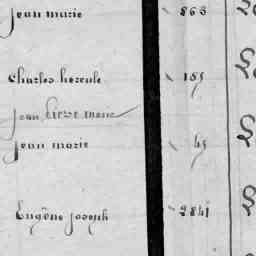 Jean marie 863
Charles hercule 159
Jean pierre marie
Jean marie 45
Eugène joseph 2841